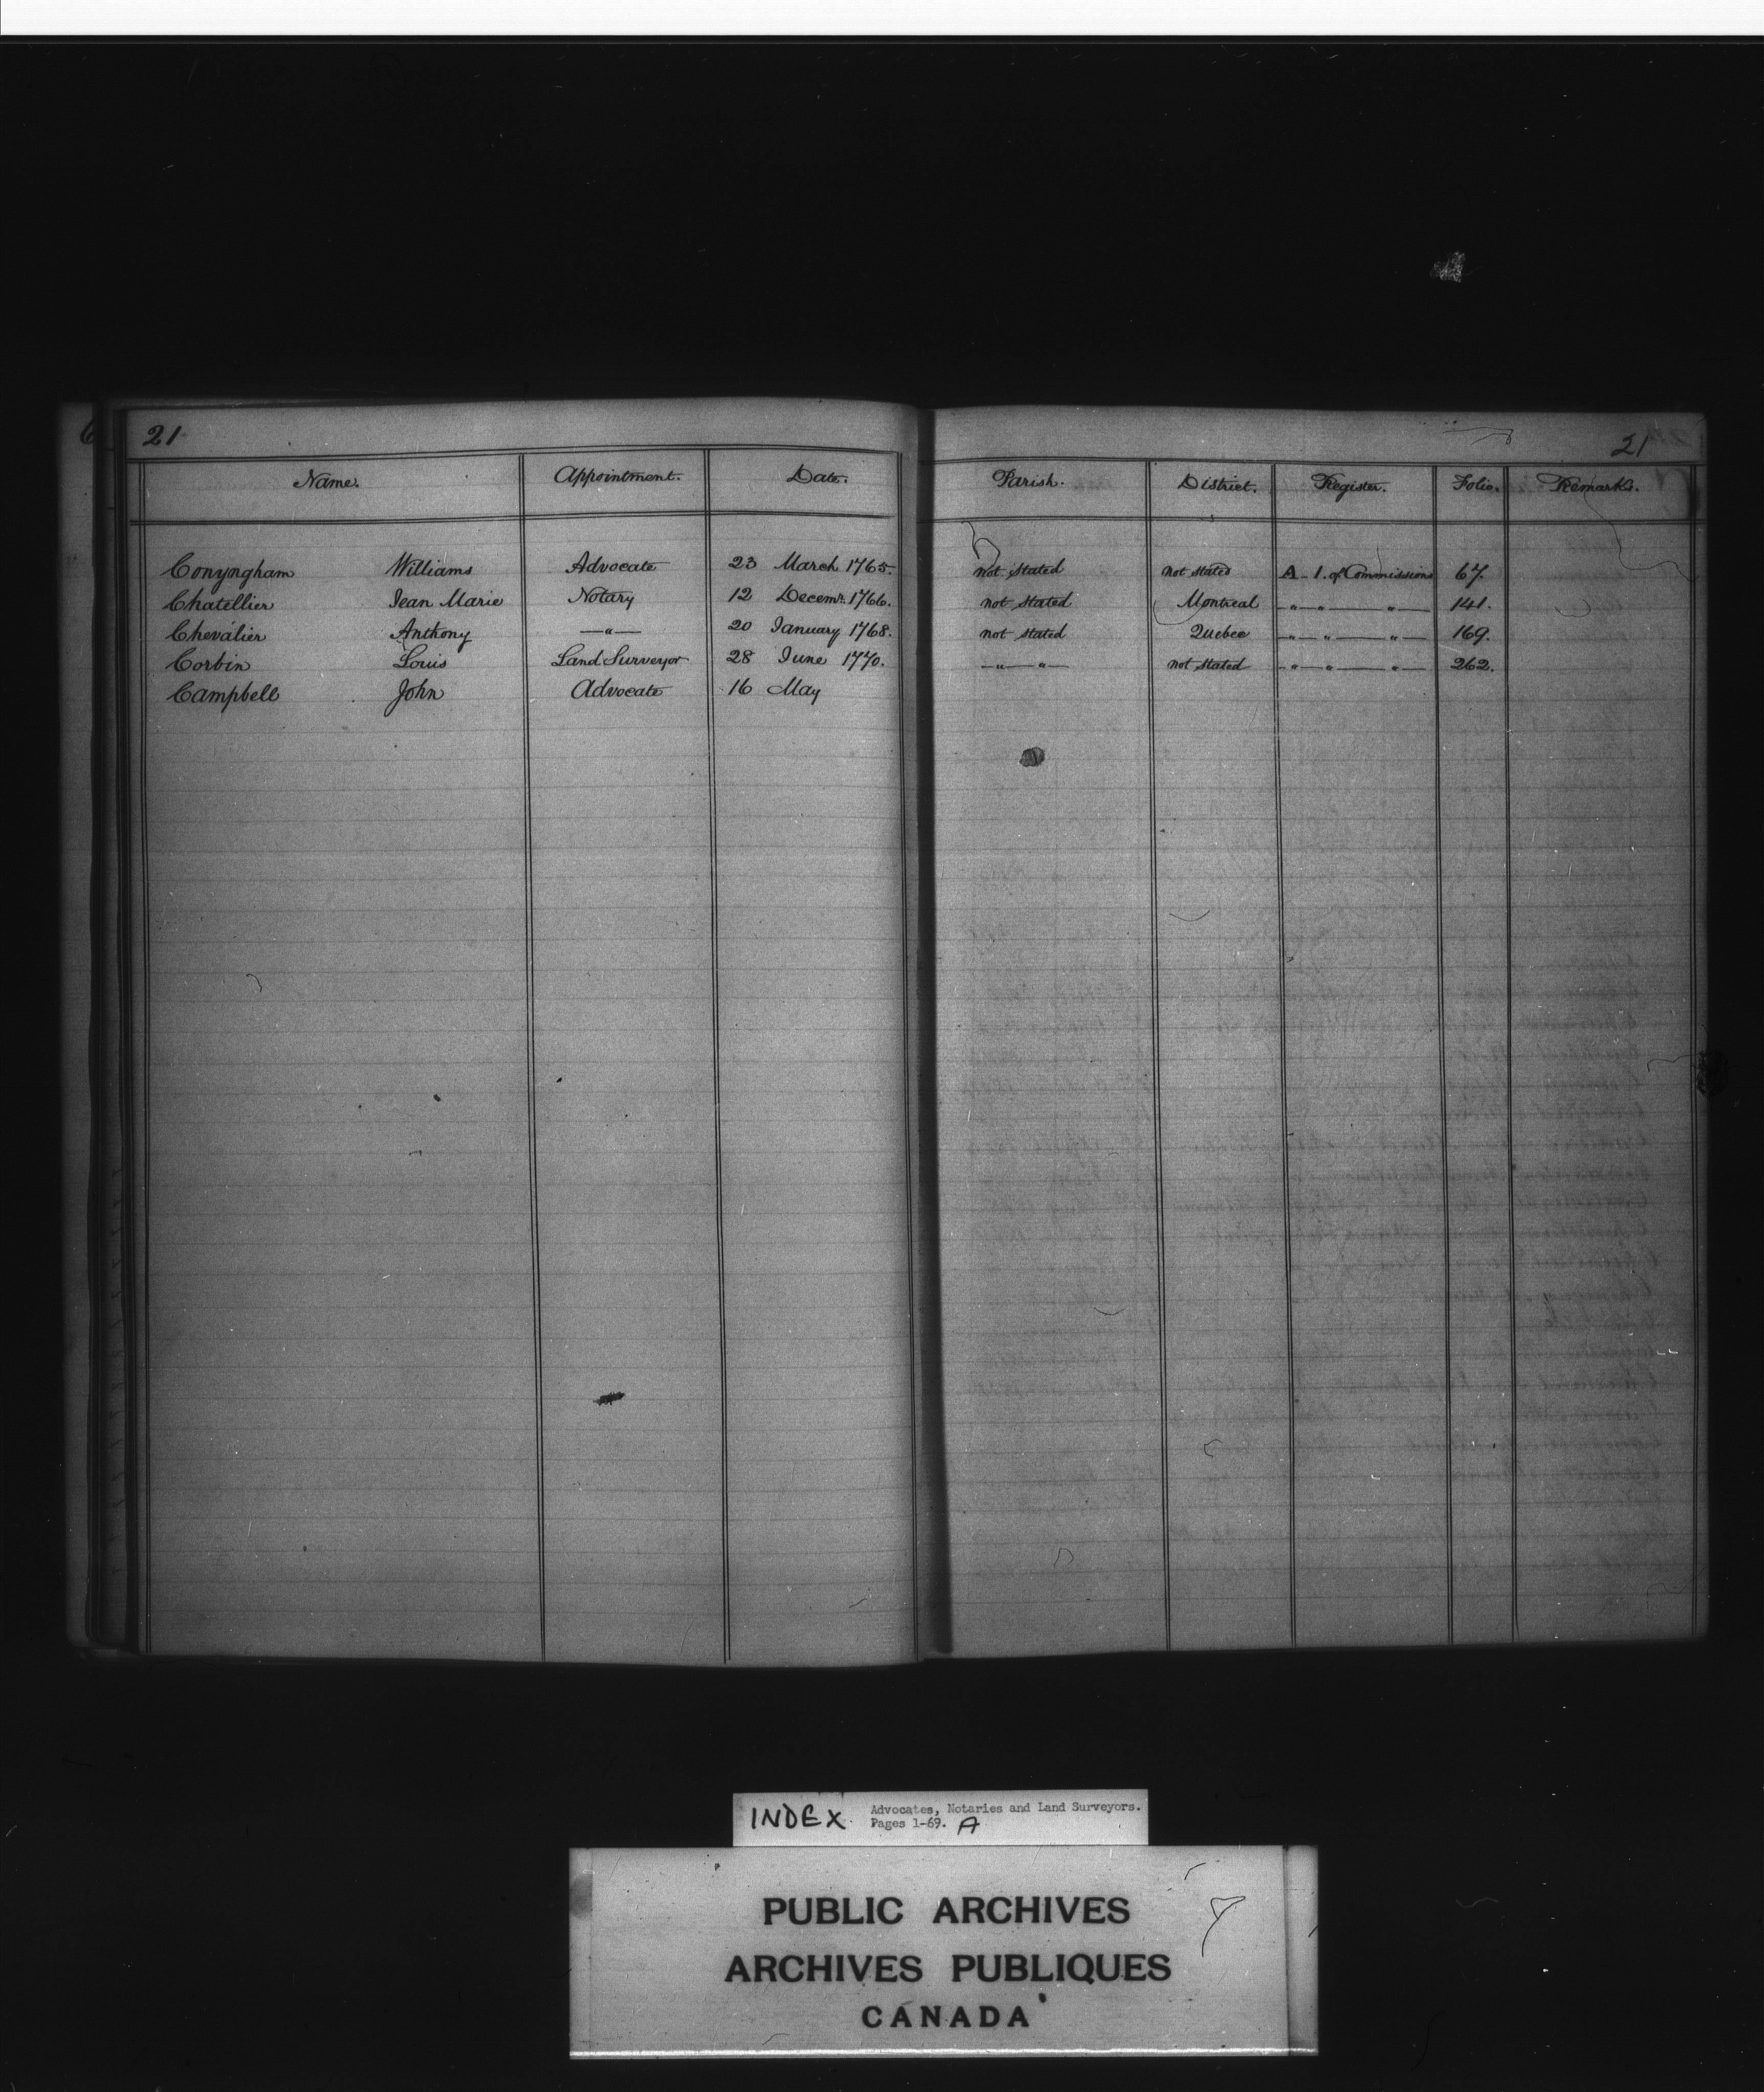 21 21
Name. Appointment. Date. Parish. District. Register. Folio. Remarks.
Conyngham Williams Advocate 23 March 1765. not stated not stated A - 1. of Commissions 67.
Chatellier Jean Marie Notary 12 Decemr. 1766. not stated Montreal -"-"-"- 141.
Chevalier Anthony -"- 20 January 1768. not stated Quebec -"-"-"- 169.
Corbin Louis Land Surveyor 28 June 1770. -"-"- not stated -"-"-"- 262.
Campbell John Advocate 16 May
INDEX. Advocates, Notaries and Land Surveyors.
Pages 1-69. A
PUBLIC ARCHIVES
ARCHIVES PUBLIQUES
CANADA